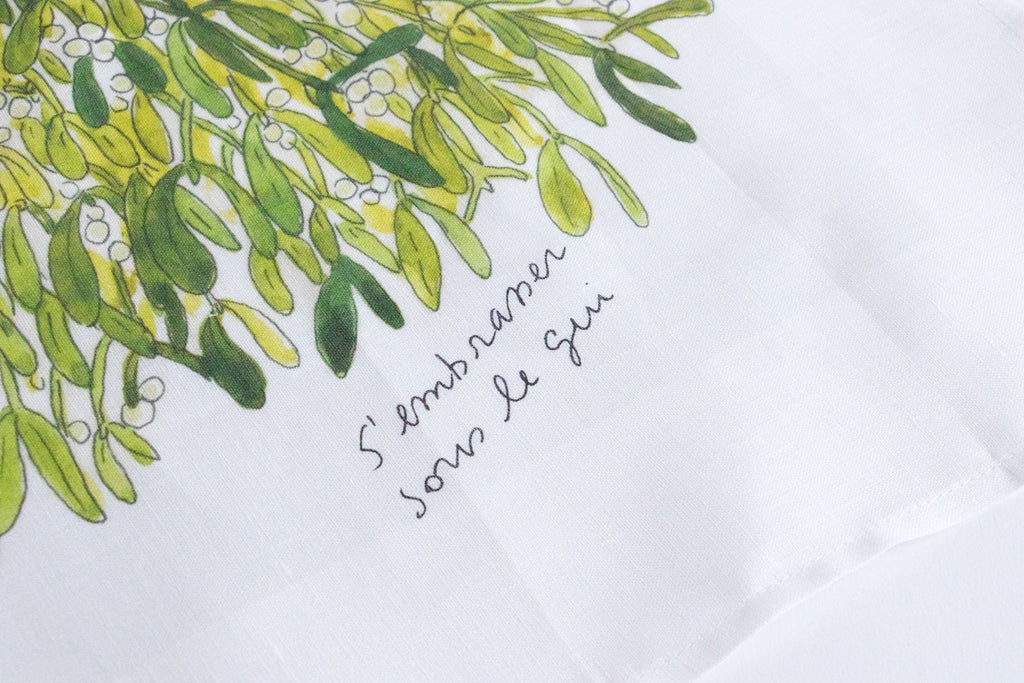 s'embrasser
sous le gui